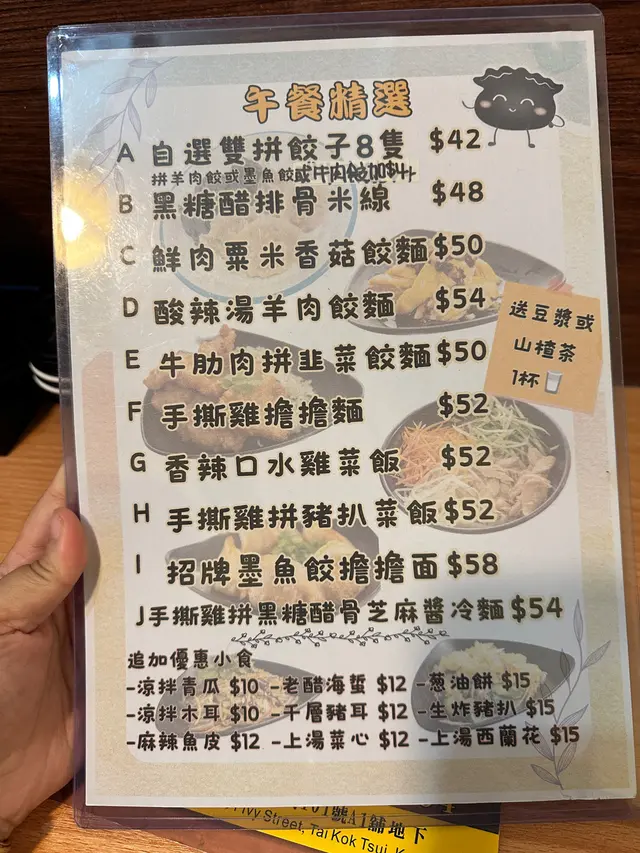 午餐精選
A 自選雙拼餃子8隻 $42
拼羊肉餃或墨魚餃或
B 黑糖醋排骨米線 $48
C 鮮肉粟米香菇餃麵 $50
D 酸辣湯羊肉餃麵 $54
E 牛肋肉拼韭菜餃麵 $50
送豆漿或
山楂茶
1杯
F 手撕雞擔擔麵 $52
G 香辣口水雞菜飯 $52
H 手撕雞拼豬扒菜飯 $52
I 招牌墨魚餃擔擔面 $58
J 手撕雞拼黑糖醋骨芝麻醬冷麵 $54
追加優惠小食
-涼拌青瓜 $10 -老醋海蜇 $12 -葱油餅 $15
-涼拌木耳 $10 -千層豬耳 $12 -生炸豬扒 $15
-麻辣魚皮 $12 -上湯菜心 $12 -上湯西蘭花 $15
號A1舖地下
Ivy Street, Tai Kok Tsui,